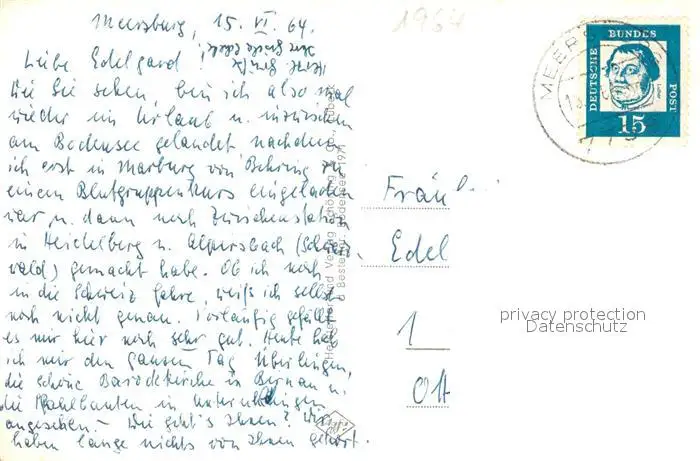 Meersburg, 15. VI. 64.
1964
Liebe Edelgard!
Herzl. Grüße
Wie Sie sehen, bin ich also mal
wieder im Urlaub u. inzwischen
am Bodensee gelandet nachdem
ich erst in Marburg von Behring zu
einem Blutgruppenkurs eingeladen
war u. dann noch Zwischenstation
in Heidelberg u. Alpersbach (Schwarz-
wald) gemacht habe. Ob ich noch
in die Schweiz fahre, weiß ich selbst
noch nicht genau. Vorläufig gefällt
es mir hier noch sehr gut. Heute hab
ich mir den ganzen Tag Überlingen,
die schöne Barockkirche in Birnau u.
die Pfahlbauten in Unteruhldingen
angesehen. – Wie geht's Ihnen? Wir
haben lange nichts von Ihnen gehört.
Herstellung und Verlag Schöning & Co., Lübeck
Bestell-Nr. Bodensee 1971
MEERS
DEUTSCHE BUNDES POST
15
Fräul
Edel
1
Ott
privacy protection
Datenschutz